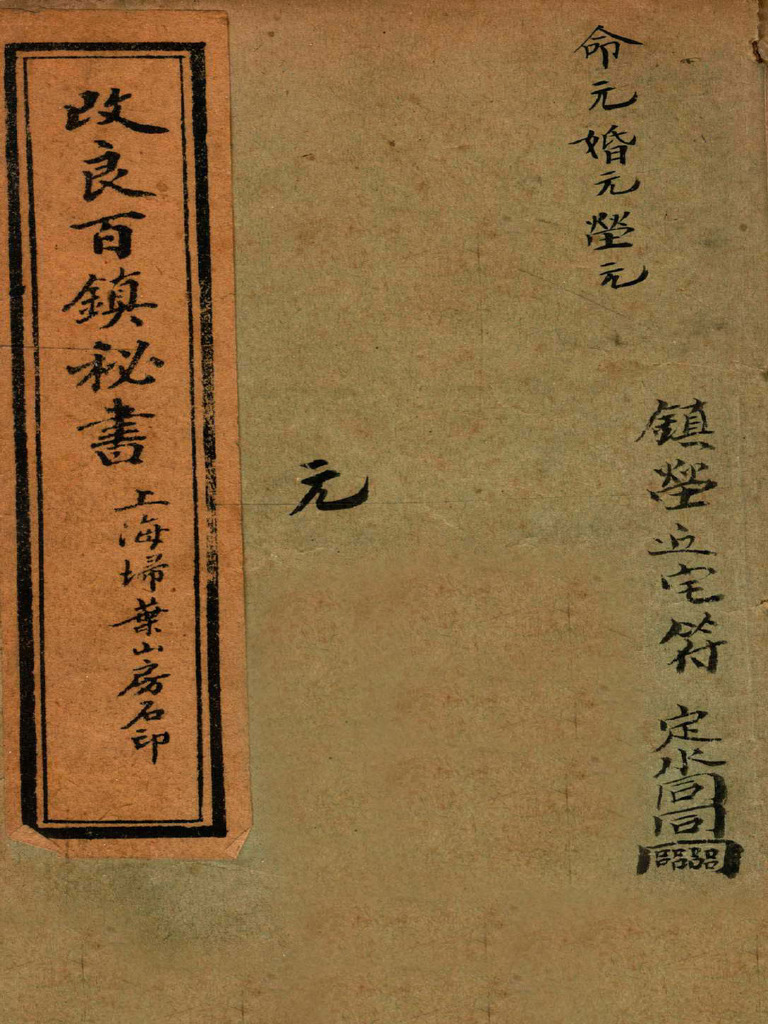 命元婚元塋元
鎮塋丘宅符
元
改良百鎮秘書
上海埽葉山房石印